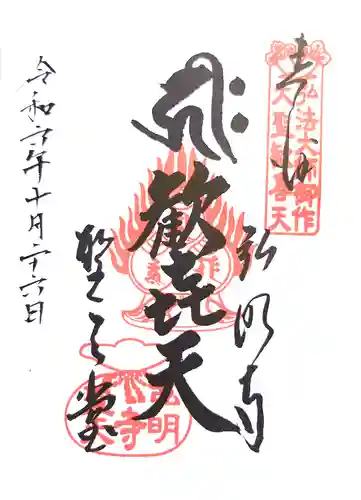 奉拝
弘法大師御作
大聖歓喜天
弘明寺
歓喜天
聖天堂
令和六年十月二十六日